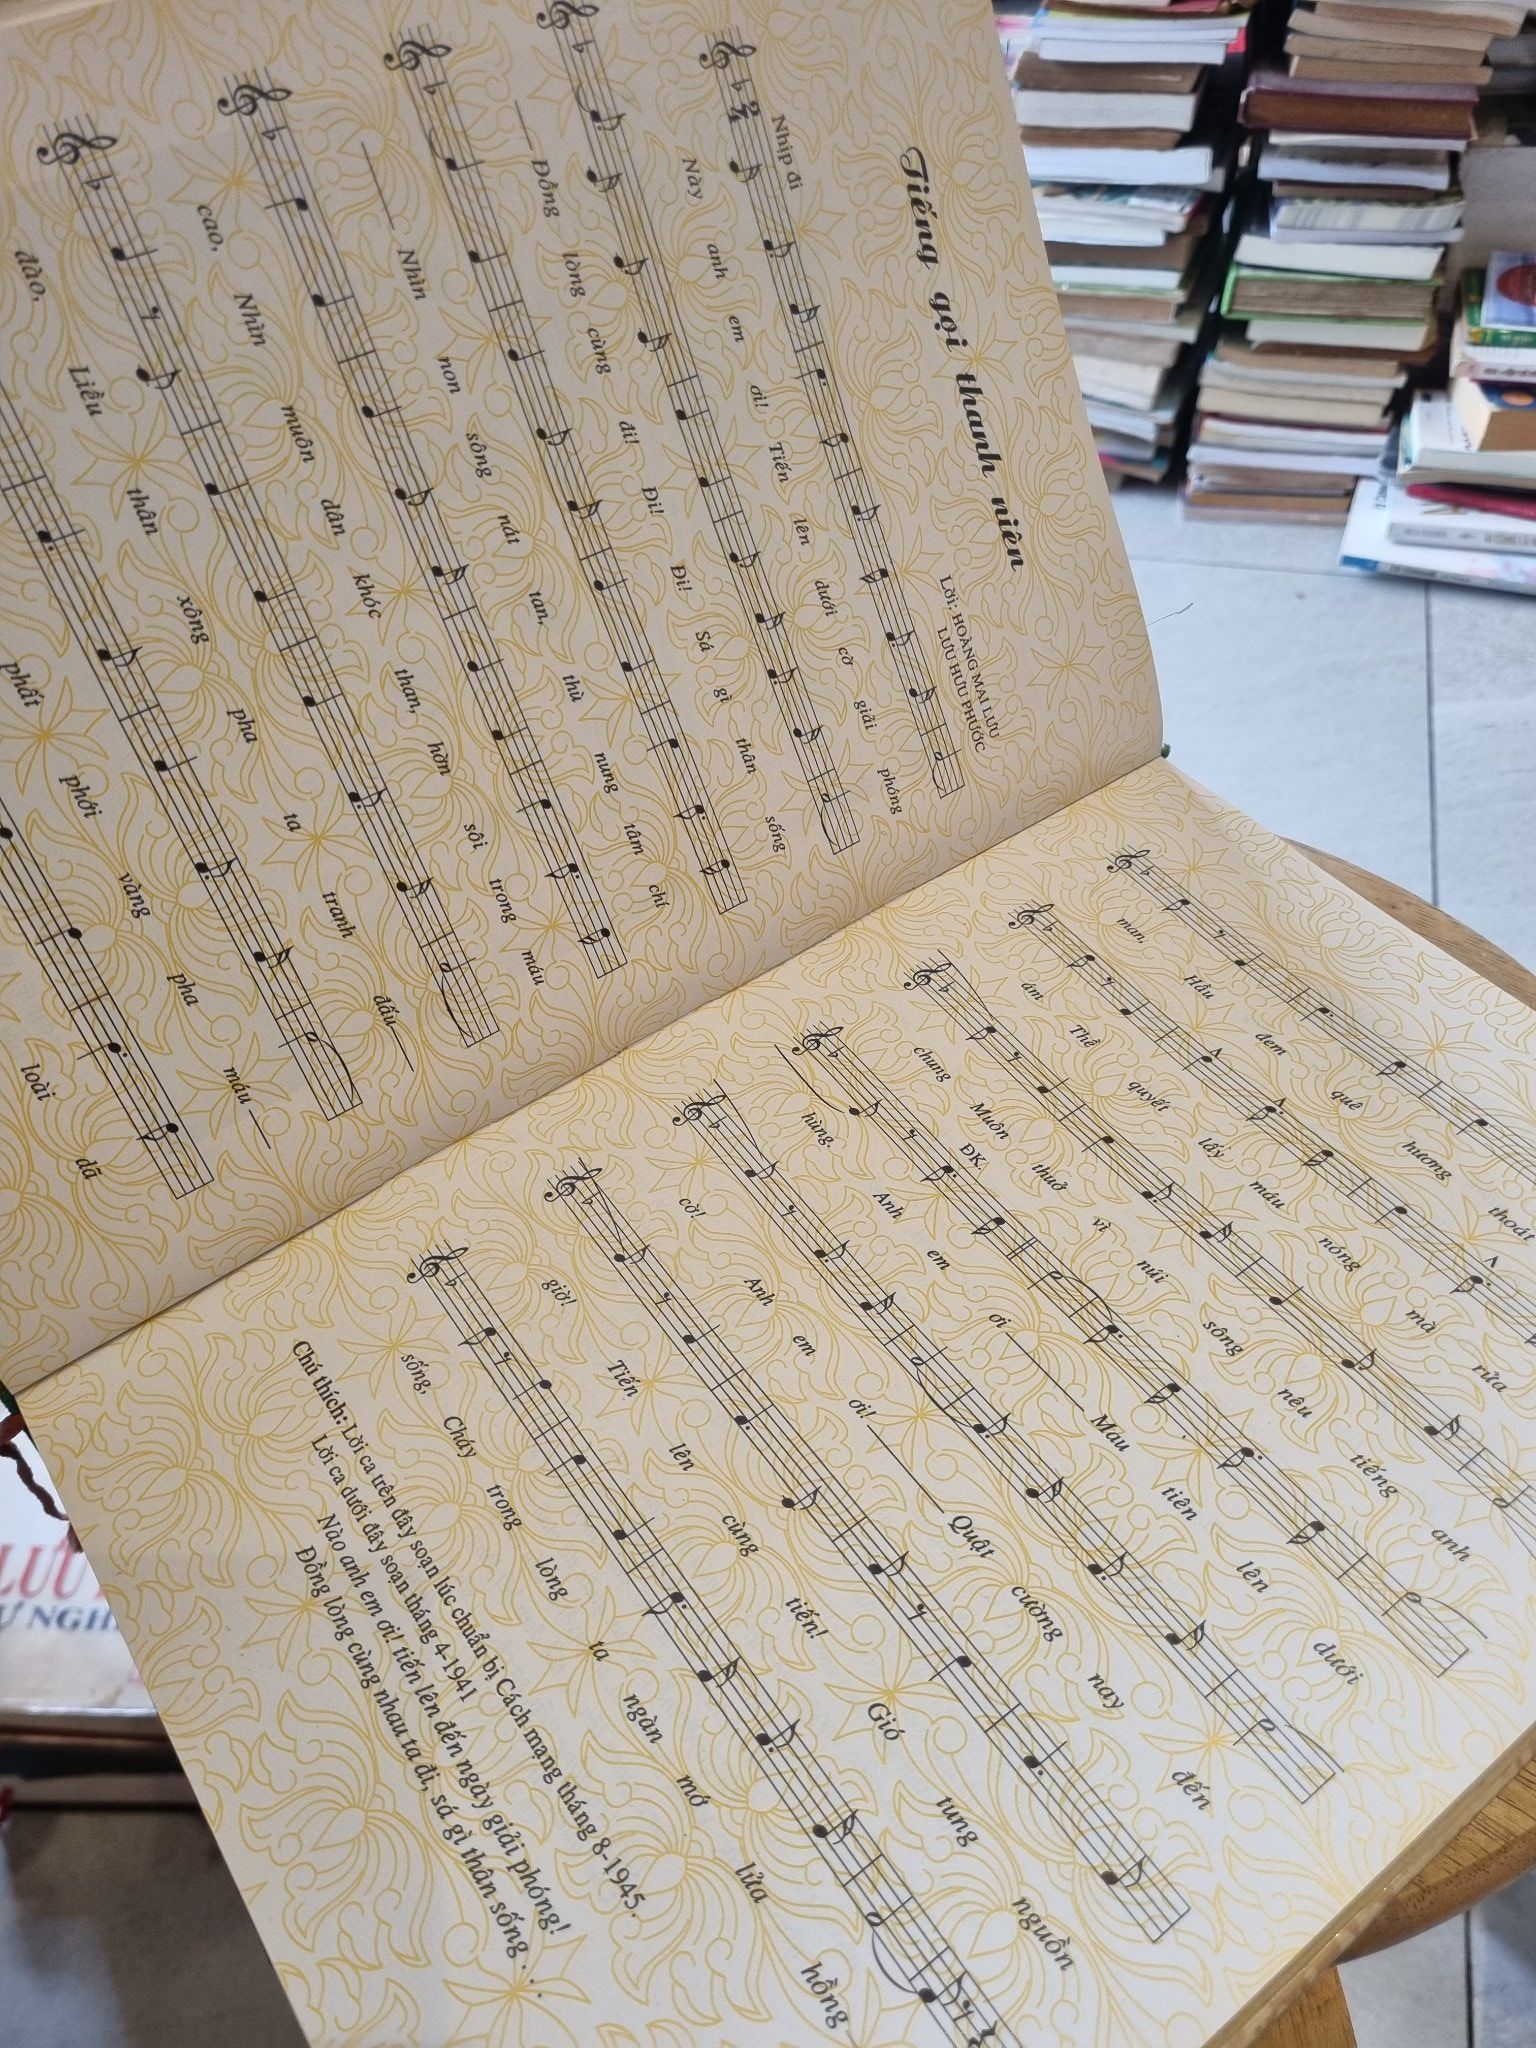 Tiếng gọi thanh niên
Lời: HOÀNG MAI LƯU
LƯU HỮU PHƯỚC
Nhịp đi
Này anh em ơi! Tiến lên dưới cờ giải phóng
Đồng lòng cùng đi! Đi! Đi! Sá gì thân sống
Nhìn non sông nát tan, thù nung tâm chí
cao, Nhìn muôn dân khóc than, hờn sôi trong máu
đào, Liều thân xông pha ta tranh đấu
phất phới vàng pha máu
loài dã
man, Hầu đem quê hương thoát
ám Thề quyết lấy máu nóng mà rửa
chung Muôn thuở vì núi sông nêu tiếng anh
hùng. Anh em ơi Mau tiên lên dưới
ĐK.
cờ! Anh em ơi! Quật cường nay đến
giờ! Tiến lên cùng tiến! Gió tung nguồn
sống, Cháy trong lòng ta ngàn mớ lửa hồng
Chú thích: Lời ca trên đây soạn lúc chuẩn bị Cách mạng tháng 8-1945.
Lời ca dưới đây soạn tháng 4-1941
Nào anh em ơi! tiến lên đến ngày giải phóng!
Đồng lòng cùng nhau ta đi, sá gì thân sống . . .
LƯU
Ự NGH